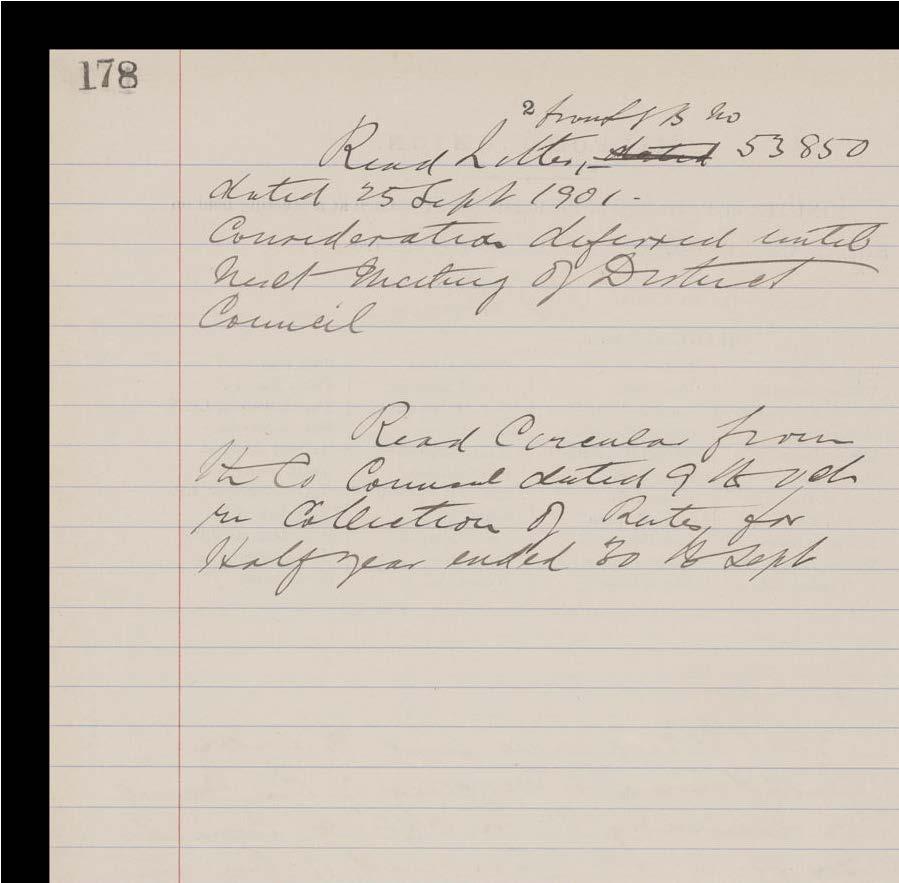 178
2 from L G B No
Read Letter, dated 53850
dated 25 Sept 1901.
Consideration deferred until
Next Meeting of District
Council
Read Circular from
the Co Council dated 9th
re Collection of Rates for
Half year ended 30th Sept